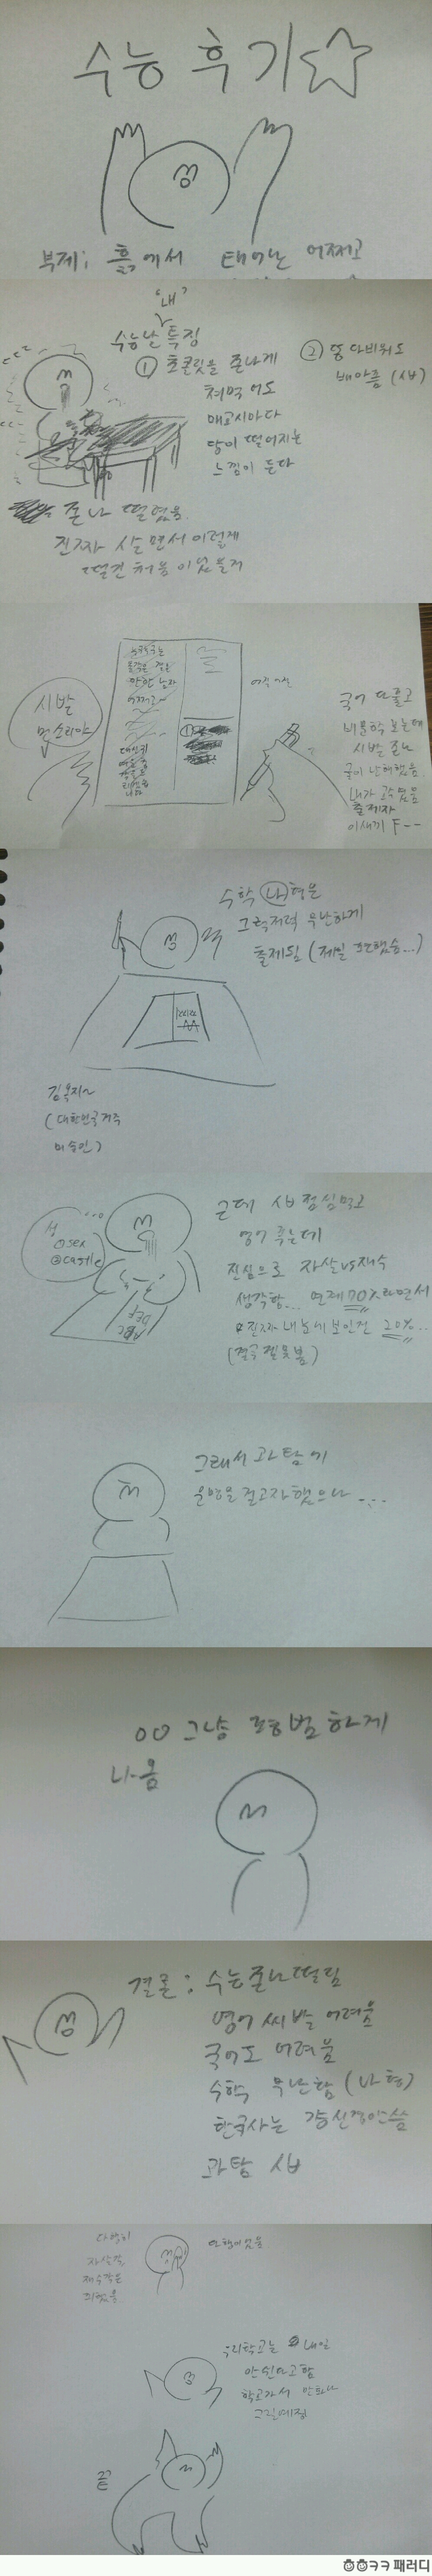 수능 후기☆
부제: 흙에서 태어난 어쩌고
"내"
수능난 특징
① 초콜릿을 존나게
쳐먹어도
매교시마다
당이 떨어지는
느낌이 든다
② 똥 다비워도
배아픔 (시바)
존나 떨렸음
진짜 살면서 이렇게
떨건 처음이었을거
시발
뭔소리야
국어 다 풀고
비문학 보는데
시발 존나
국이 난해했음
출제자
이새끼 F--
수학 나형은
그럭저럭 무난하게
출제됨 (제일 편했슴...)
(대한민국거주
근데 시바 점심먹고
영어 푸는데
진심으로 자살vs재수
생각함... 연계70%라면서
진짜 내눈에 보인건 20%..
성
①sex
②castle
ABC
DEF
그래서 과탐에
운명을 걸고자했으나 ....
00 그냥 평범하게
나옴
결론: 수능존나떨림
영어 씨발 어려움
국어도 어려움
수학 무난함 (나형)
한국사는 걍신경안씀
과탐 시바
다행히
자살각
재수각은
피했음
우리학교는 내일
안쉰다고함
학교가서 만화나
그릴예정
끝
ㅎㅎㅋㅋ 패러디